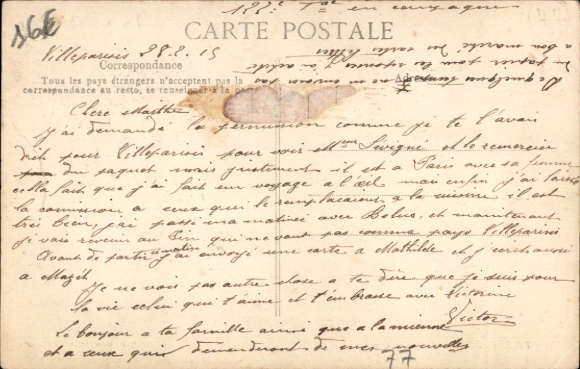 CARTE POSTALE
Villeparisis 28.2.15
Correspondance
Tous les pays étrangers n'acceptent pas la
correspondance au recto, se renseigner à la
en campagne
du papier pour les réponses j'ai acheté
a bon marché du cartes lettres
Chere Marthe
J'ai demandé la permission comme je te l'avais
dit pour Villeparisis pour voir Mr Sevigné et le remercier
du paquet mais justement il est a Paris avec sa femme
cella fait que j'ai fait un voyage a l'œil mais enfin j'ai fait
la commission a ceux qui le remplacaient a la cuisine il est
très bien, j'ai passé ma matinée avec Bolus, et maintenant
je vais revenir au Pin qui ne vaut pas comme pays Villeparisis
Avant de partir ce matin j'ai envoyé une carte a Mathilde et j'écrit aussi
a
Je ne vois pas autre chose a te dire que je suis pour
la vie celui qui t'aime et t'embrasse avec Victorine
Victor
Le bonjour a ta famille ainsi que a la mienne
et a ceux qui demanderont de mes nouvelles
77